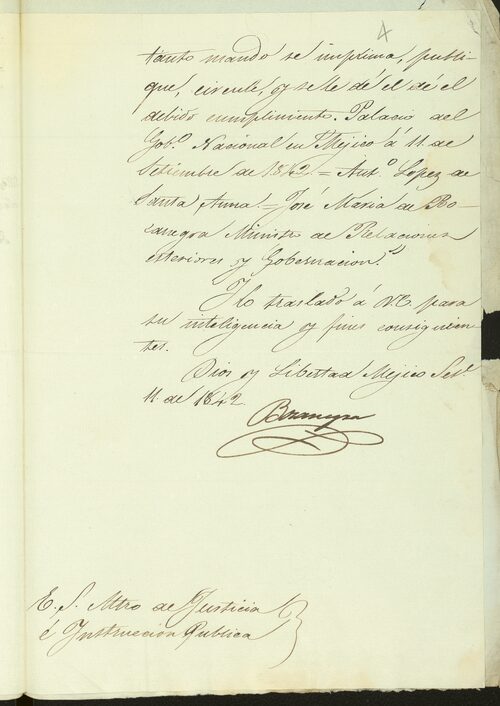 4
tanto mando se imprima, publi-
que, circule, y se le dé el dé el
debido cumplimiento. Palacio del
Gob.º Nacional en Mejico á 11. de
Setiembre de 1842. = Ant.º Lopez de
Santa Anna. = José Maria de Bo-
canegra Ministro de Relaciones
exteriores y Gobernacion."
Y lo traslado á V.E. para
su inteligencia y fines consiguien-
tes.
Dios y Libertad Mejico Set.e
11. de 1842.
Bocanegra
E. S. Mtro de Justicia
é Instruccion Publica